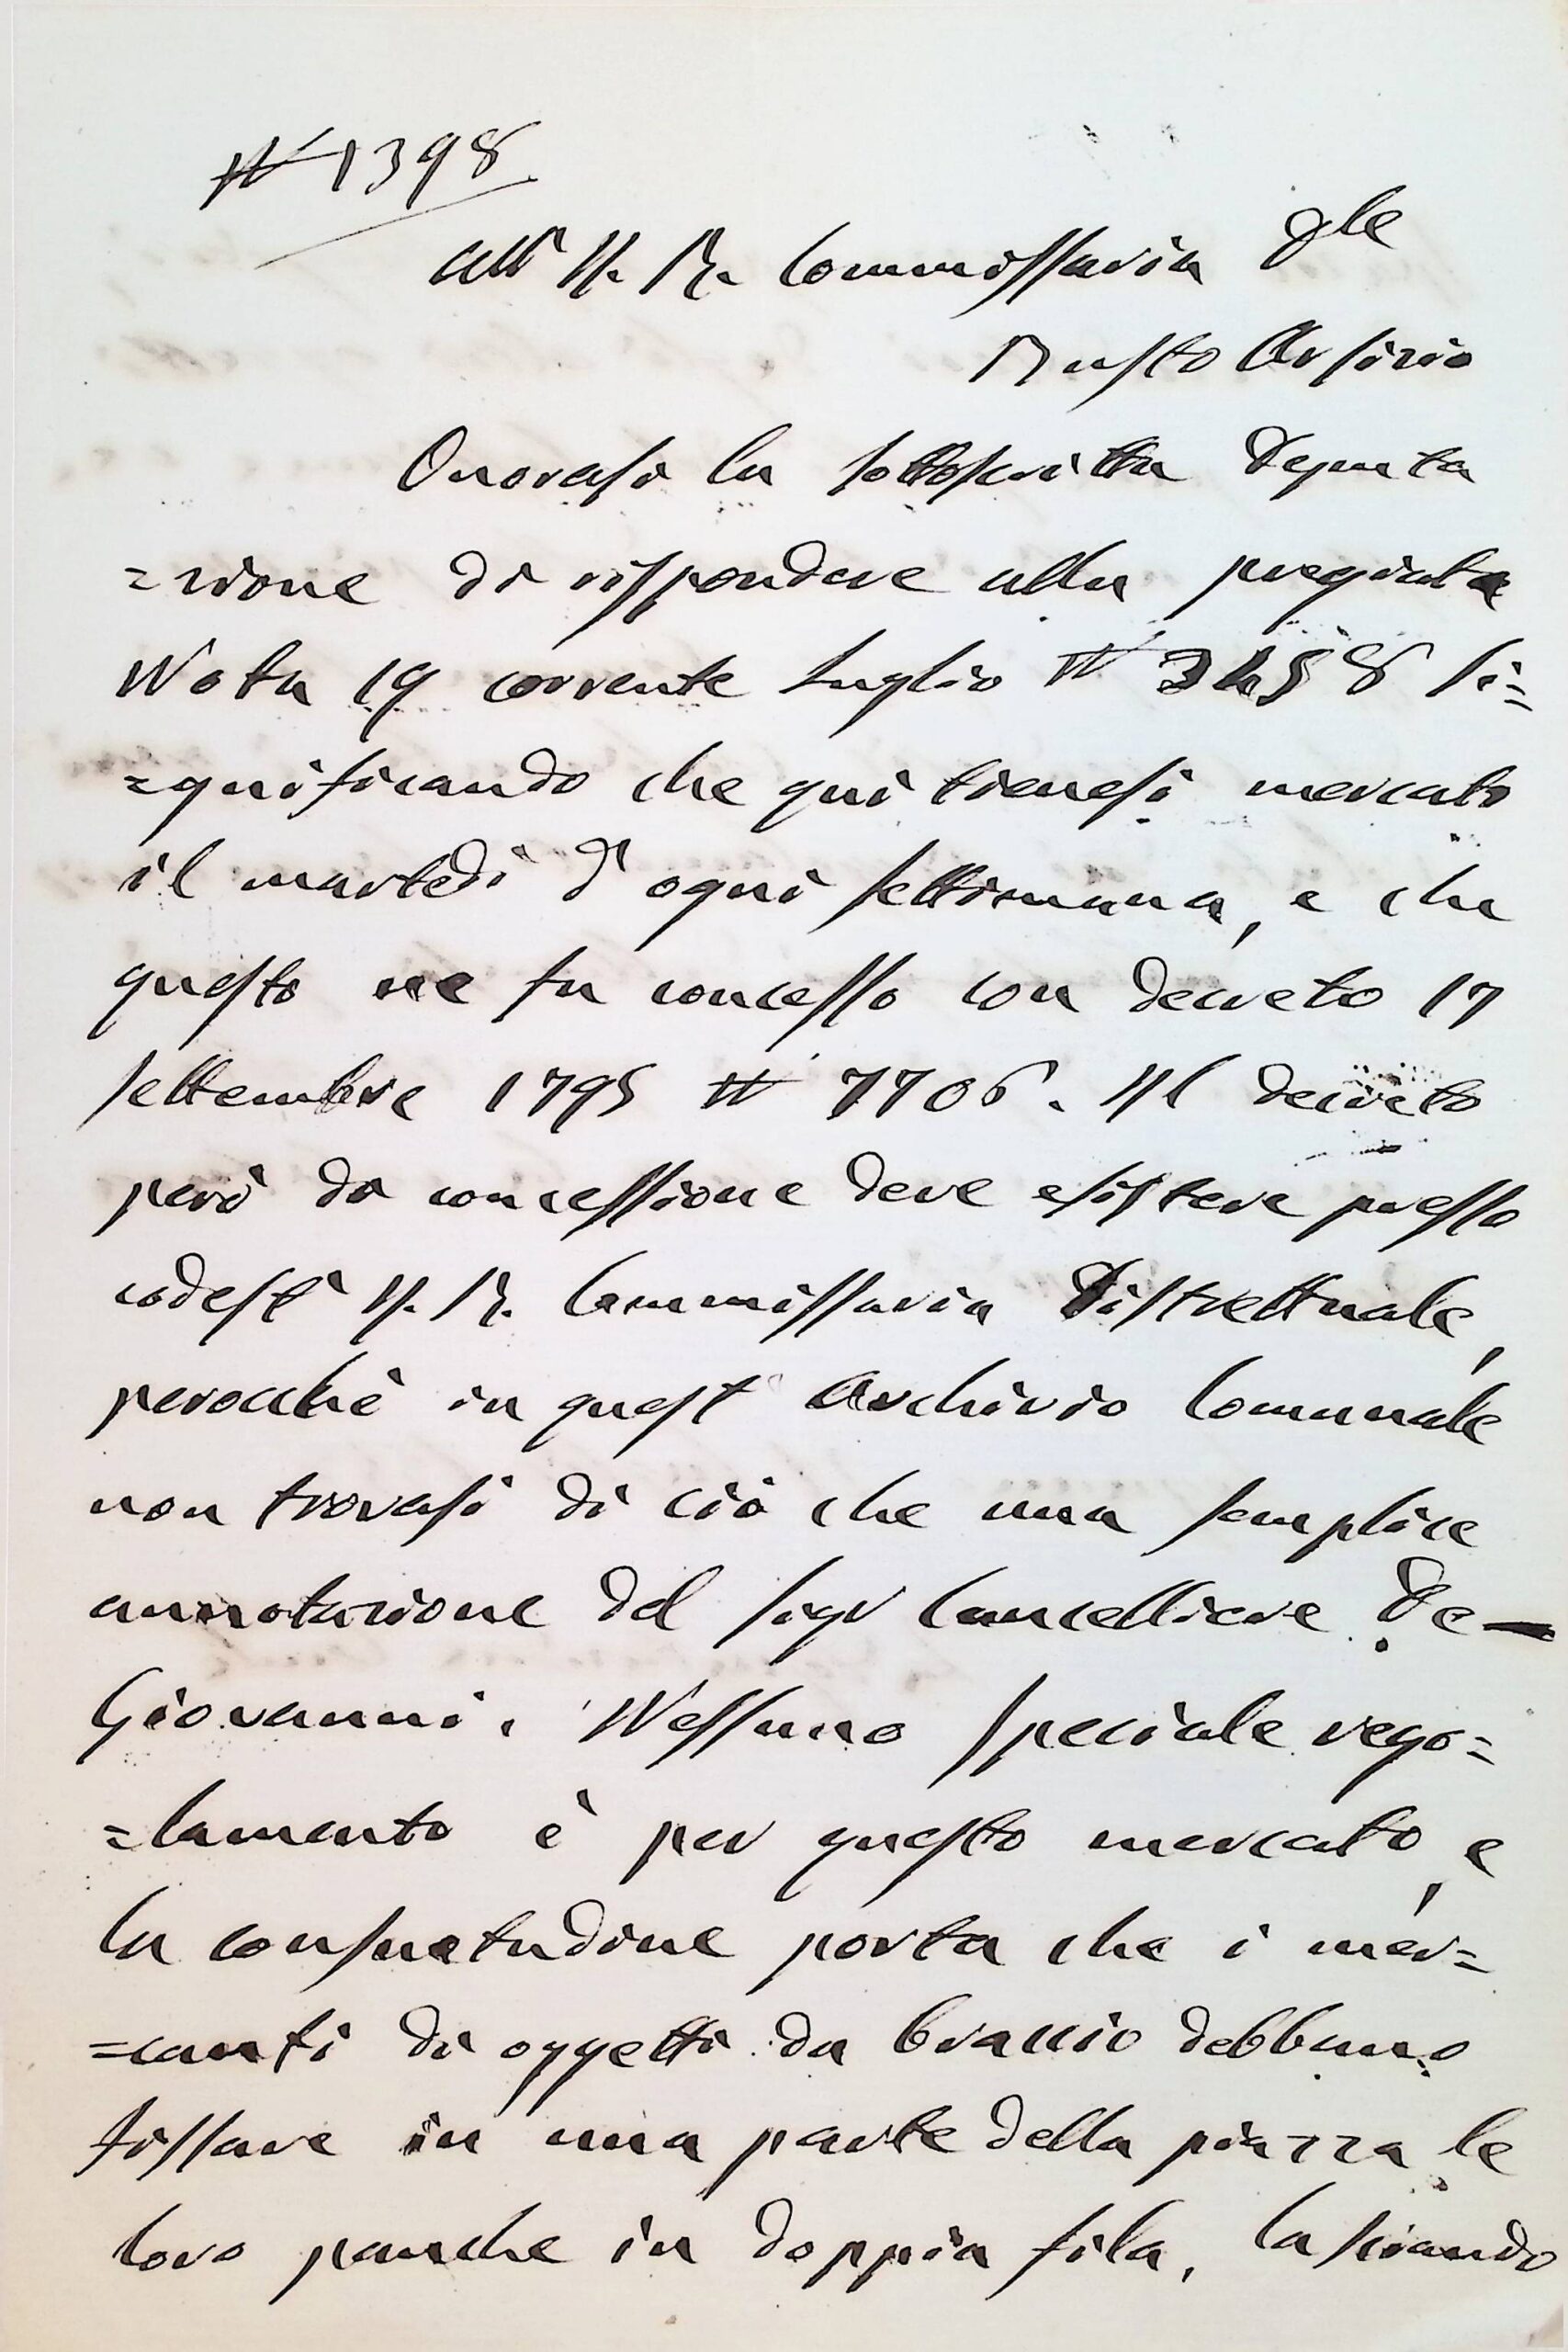 N 1398
All' I. R. Commissaria Dle
Busto Arsizio
Onorasi la sottoscritta Deputa
=zione di rispondere alla pregiata
Nota 19 corrente Luglio N 3458 si=
=gnificando che qui tienesi mercato
il martedì d'ogni settimana, e che
questo ne fu concesso con decreto 17
settembre 1795 N 7706. Il decreto
però di concessione deve esistere presso
codest' I. R. Commissaria Distrettuale,
perocchè in quest' Archivio Comunale
non trovasi di ciò che una semplice
annotazione del sigr Cancelliere De-
Giovanni. Nessuno speciale rego=
=lamento è per questo mercato, e
la consuetudine porta che i mer=
=canti di oggetti da braccio debbano
fissare in una parte della piazza le
loro panche in doppia fila, lasciando